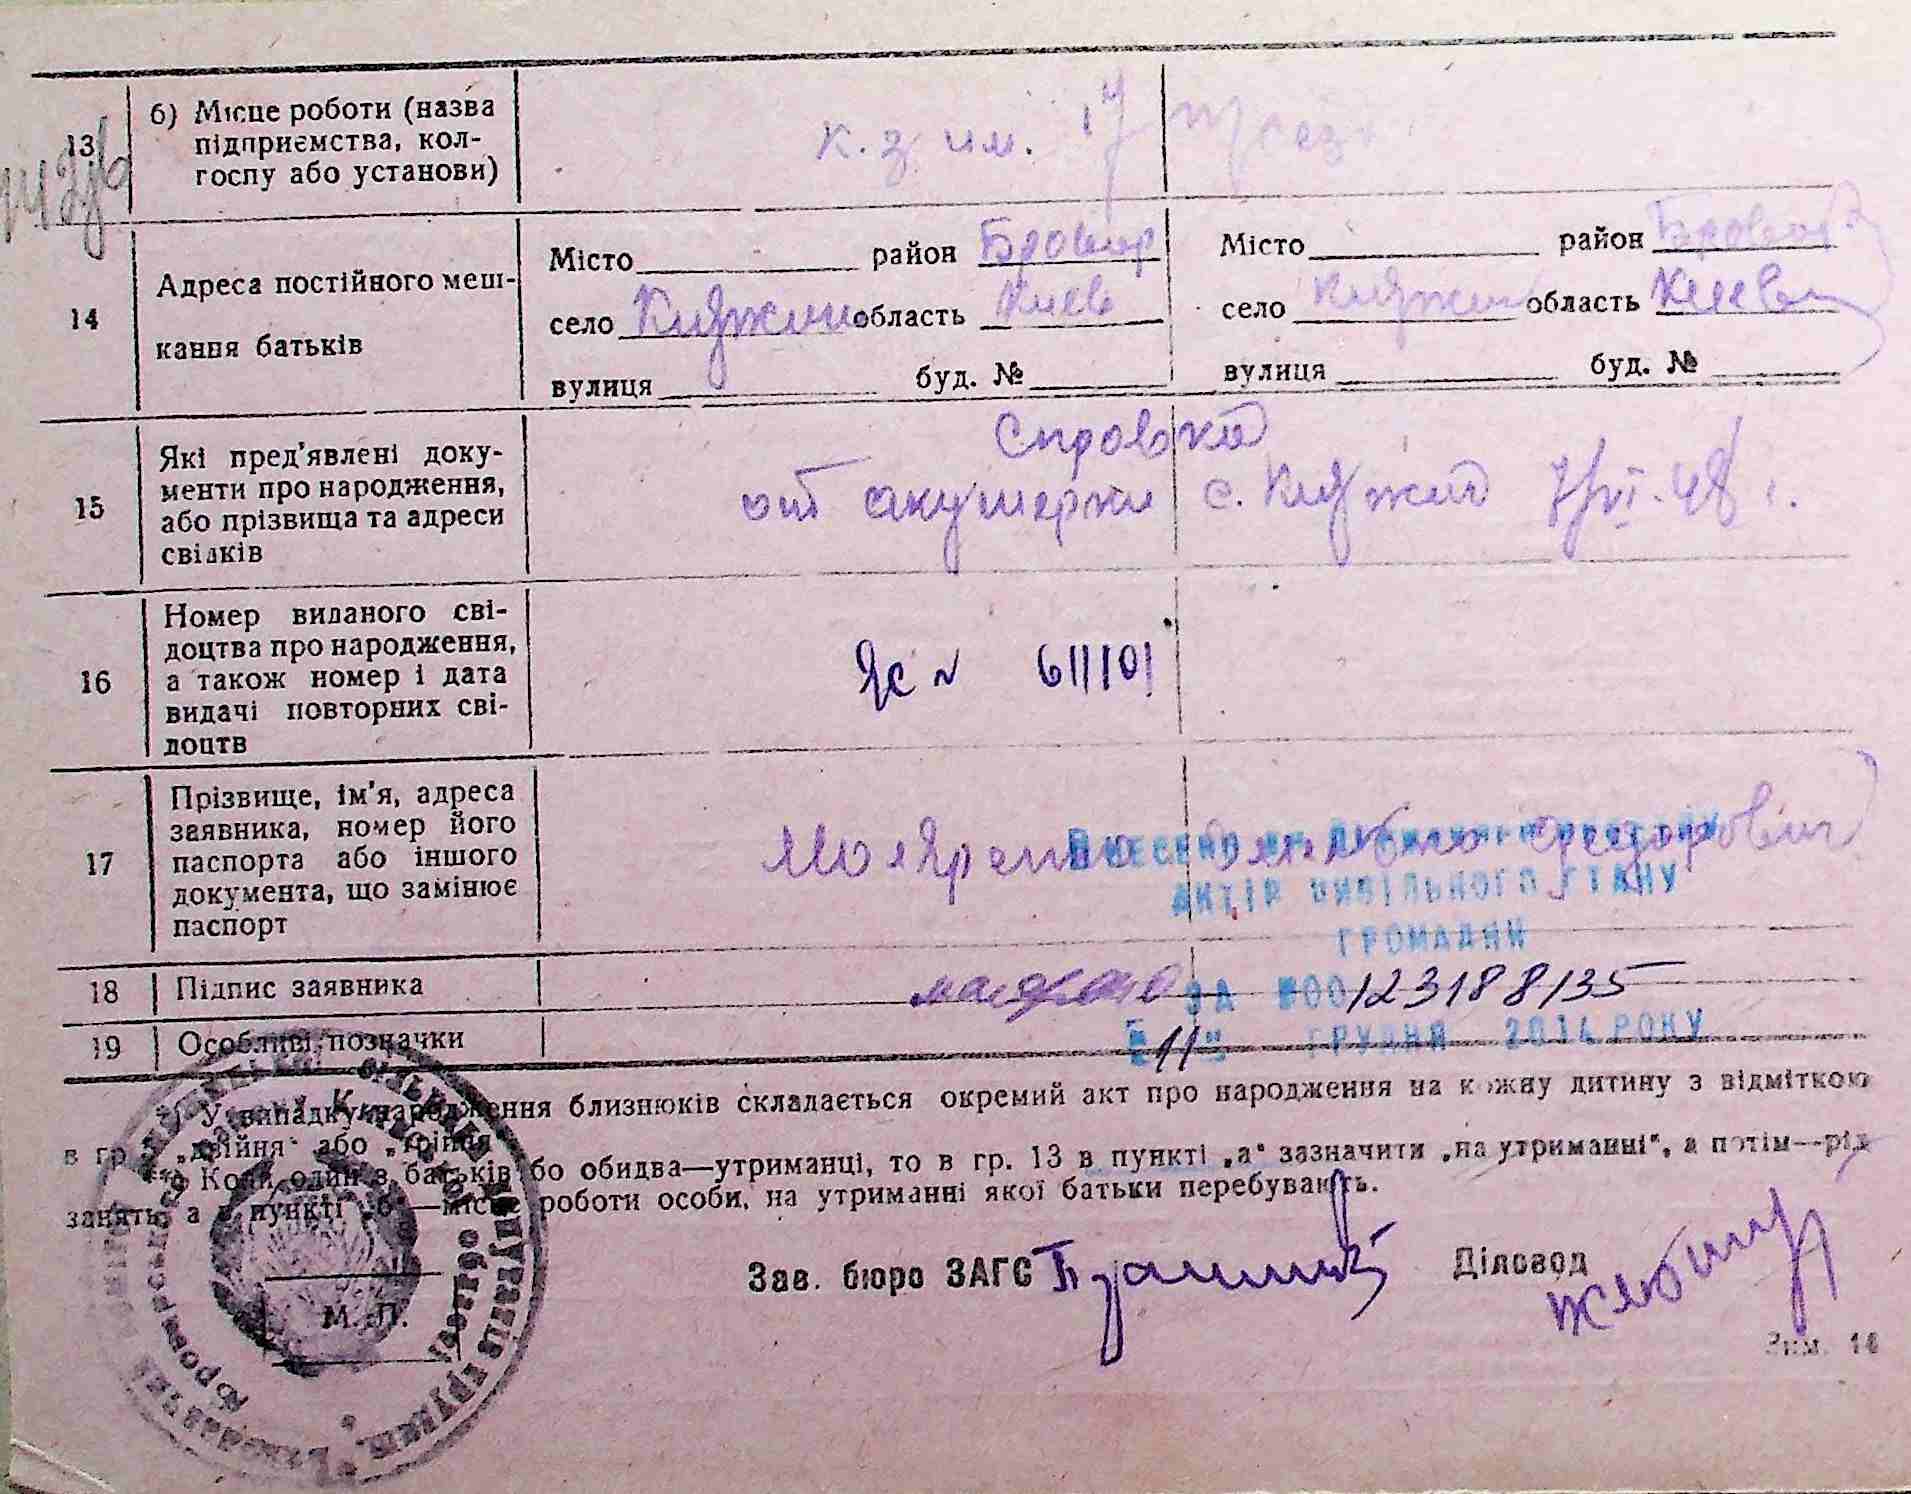 13
б) Місце роботи (назва
підприємства, кол-
госпу або установи)
к. з им. 17
14
Адреса постійного меш-
кання батьків
Місто район Бровар
село Княжичи область Киев
вулиця буд. №
Місто район
село Княжичи область Киев
вулиця буд. №
15
Які пред'явлені доку-
менти про народження,
або прізвища та адреси
свідків
Справка
от акушерки с. Княжичи 7/VI-48 г.
16
Номер виданого сві-
доцтва про народження,
а також номер і дата
видачі повторних сві-
доцтв
№ 611101
17
Прізвище, ім'я, адреса
заявника, номер його
паспорта або іншого
документа, що замінює
паспорт
Федорович
ВНЕСЕНО ДО ДЕРЖАВНОГО РЕЄСТРУ
АКТІВ ЦИВІЛЬНОГО СТАНУ
ГРОМАДЯН
18 Підпис заявника
ЗА №00123188135
19 Особливі позначки
"11" ГРУДНЯ 2014 РОКУ
*) У випадку народження близнюків складається окремий акт про народження на кожну дитину з відміткою
в гр. 5 „двійня" або „трійня"
**) Коли один з батьків або обидва—утриманці, то в гр. 13 в пункті „а" зазначити „на утриманні", а потім—рід
занять, а в пункті „б"—місце роботи особи, на утриманні якої батьки перебувають.
Зав. бюро ЗАГС
Діловод
М. П.
Зам. 14